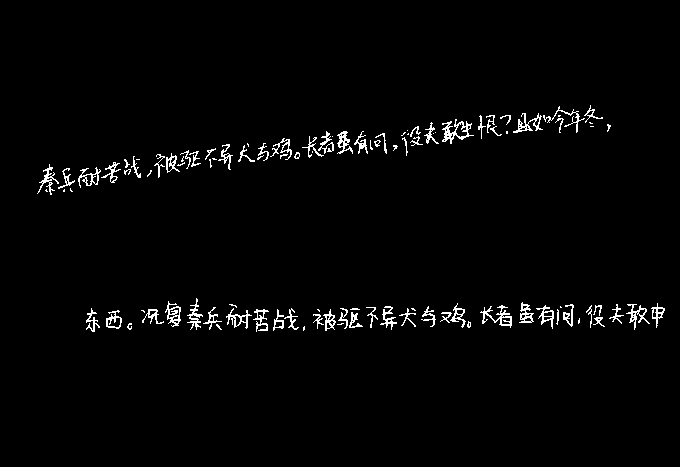 秦兵耐苦战,被驱不异犬与鸡。长者虽有问,役夫敢生恨?且如今年冬,
东西。况复秦兵耐苦战,被驱不异犬与鸡。长者虽有问,役夫敢申